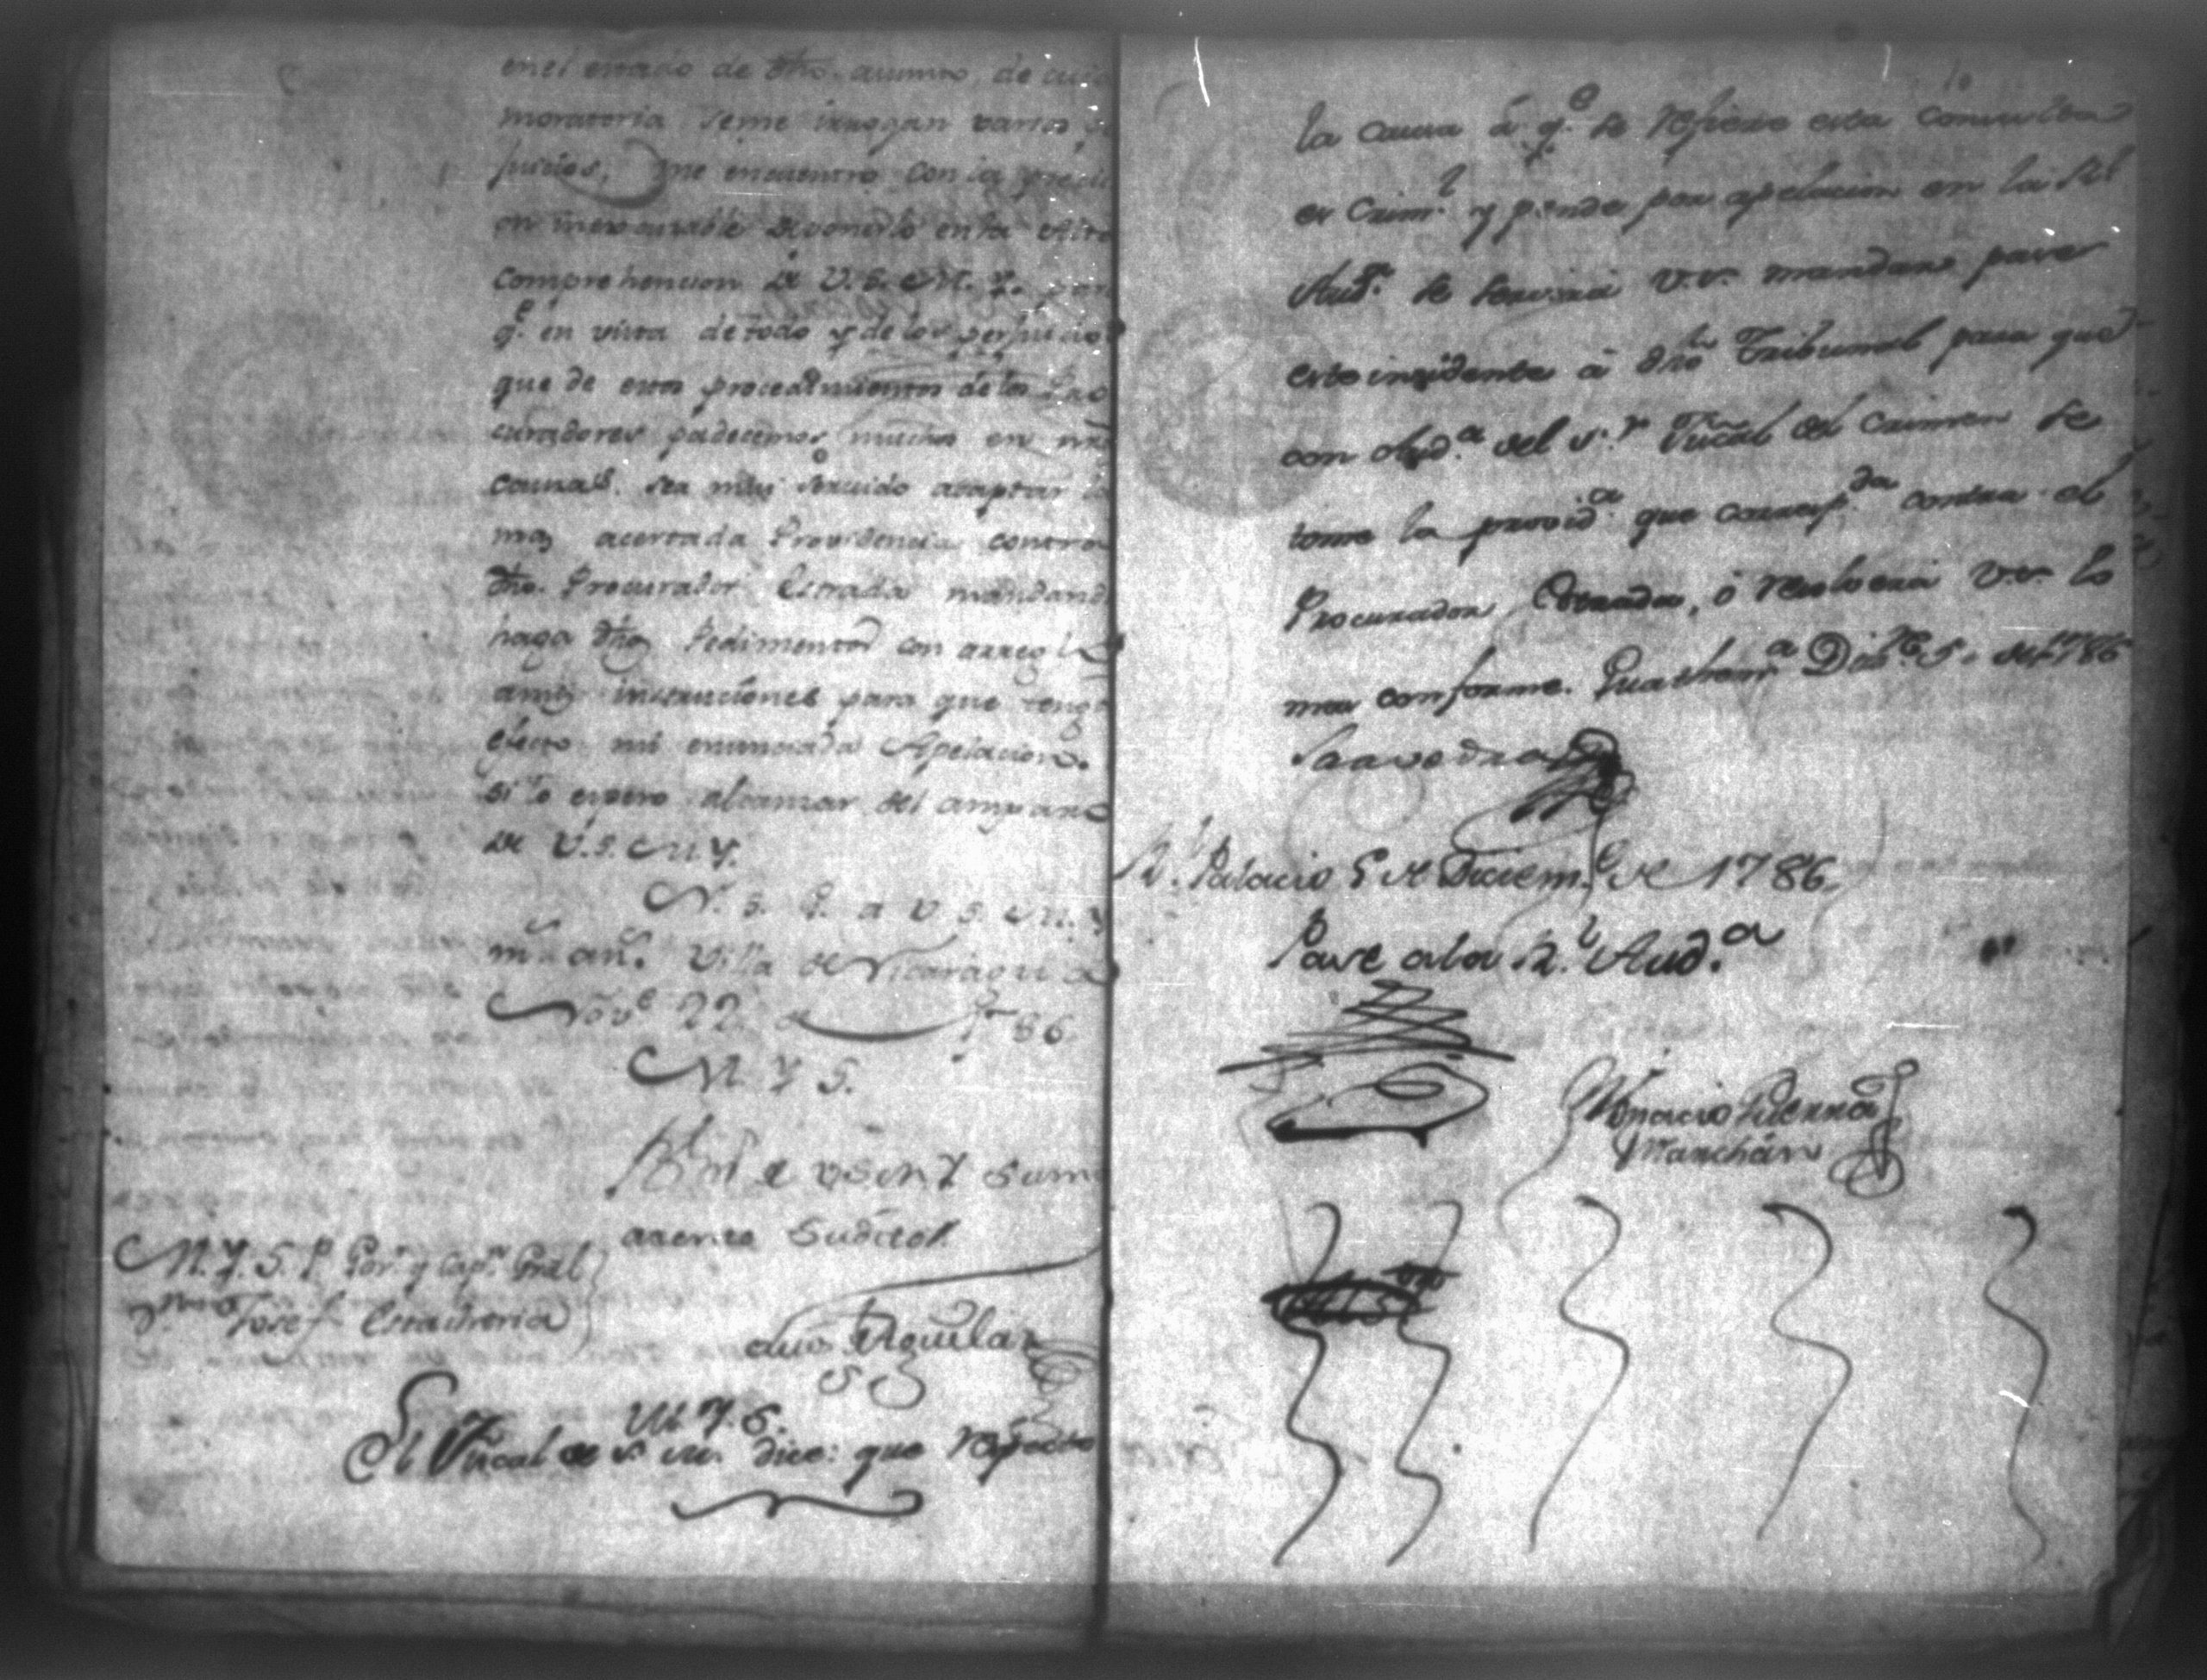 en el estado de dho. asumto, de cuia
moratoria seme irrogan varios
juicios, me encuentro con la preci
on inexcusable de ponerlo en la
Comprehencion de V. S. M. Y. par
q.e en vista de todo y de los perjuicio
que de estos procedimientos de los Pro
curadores padecemos muchos en nrãs
causas. sea muy servido acaptar la
mas acertada Providencia contra
dho. Procurador Estrada mandand
haga dhos Pedimentos con arreglo
amis instrucciones para que tenga
efecto mi enunciada Apelacion.
si lo espero alcanzar del amparo
de V. S. M. Y.
N. S. G. a V. S. M. Y
m.s an.s Villa de Nicaragua
Nov.e 22 de 86
M. Y. S.
B. l. m. de V S M Y Su m
atento Subditol
M. Y. S. P. Gov.r y Cap.n Gral
Josef Estacheria
Aguilar
M. Y. S.
El Fiscal de S. M. dice: que respecto
10
la causa á q.e se refiere esta consulta
es Crim.l y pende por apelacion en la Rl
Aud.a se servirá V.S. mandar pase
este insidente á dho Tribunal para que
con Aud.a del S.r Fiscal del Crimen se
tome la provid.a que corresp.da contra el
Procurador Estrada, ó resolverá V.S. lo
mas conforme. Guathem.a Diz.re 5, de 1786
Saavedra
R.l Palacio 5 de Diciem.e de 1786.
Pase ala R.l Aud.a
Ygnacio Guerra
Marchán